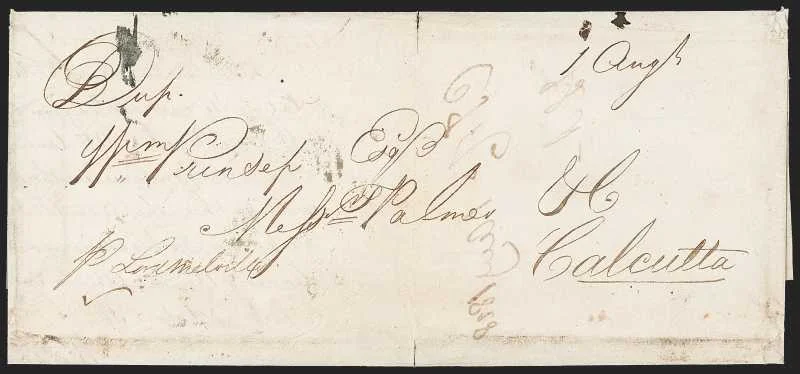 Dup.
1 Augt
Wm Prinsep Esqr
Messrs Palmer & Co
Calcutta
p Lord Melville